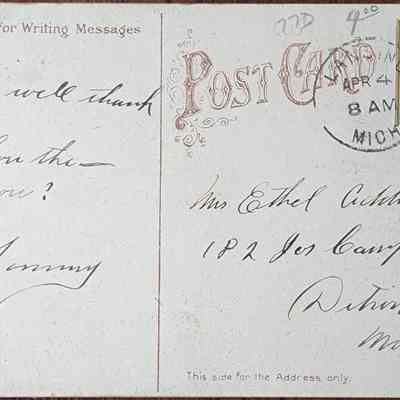 For Writing Messages
well thank
you the—
you?
Tommy
77D 4.00
POST CARD
APR 4
8 AM
MICH
Mrs Ethel
182 Jos Camp
Detroi
This side for the Address only.